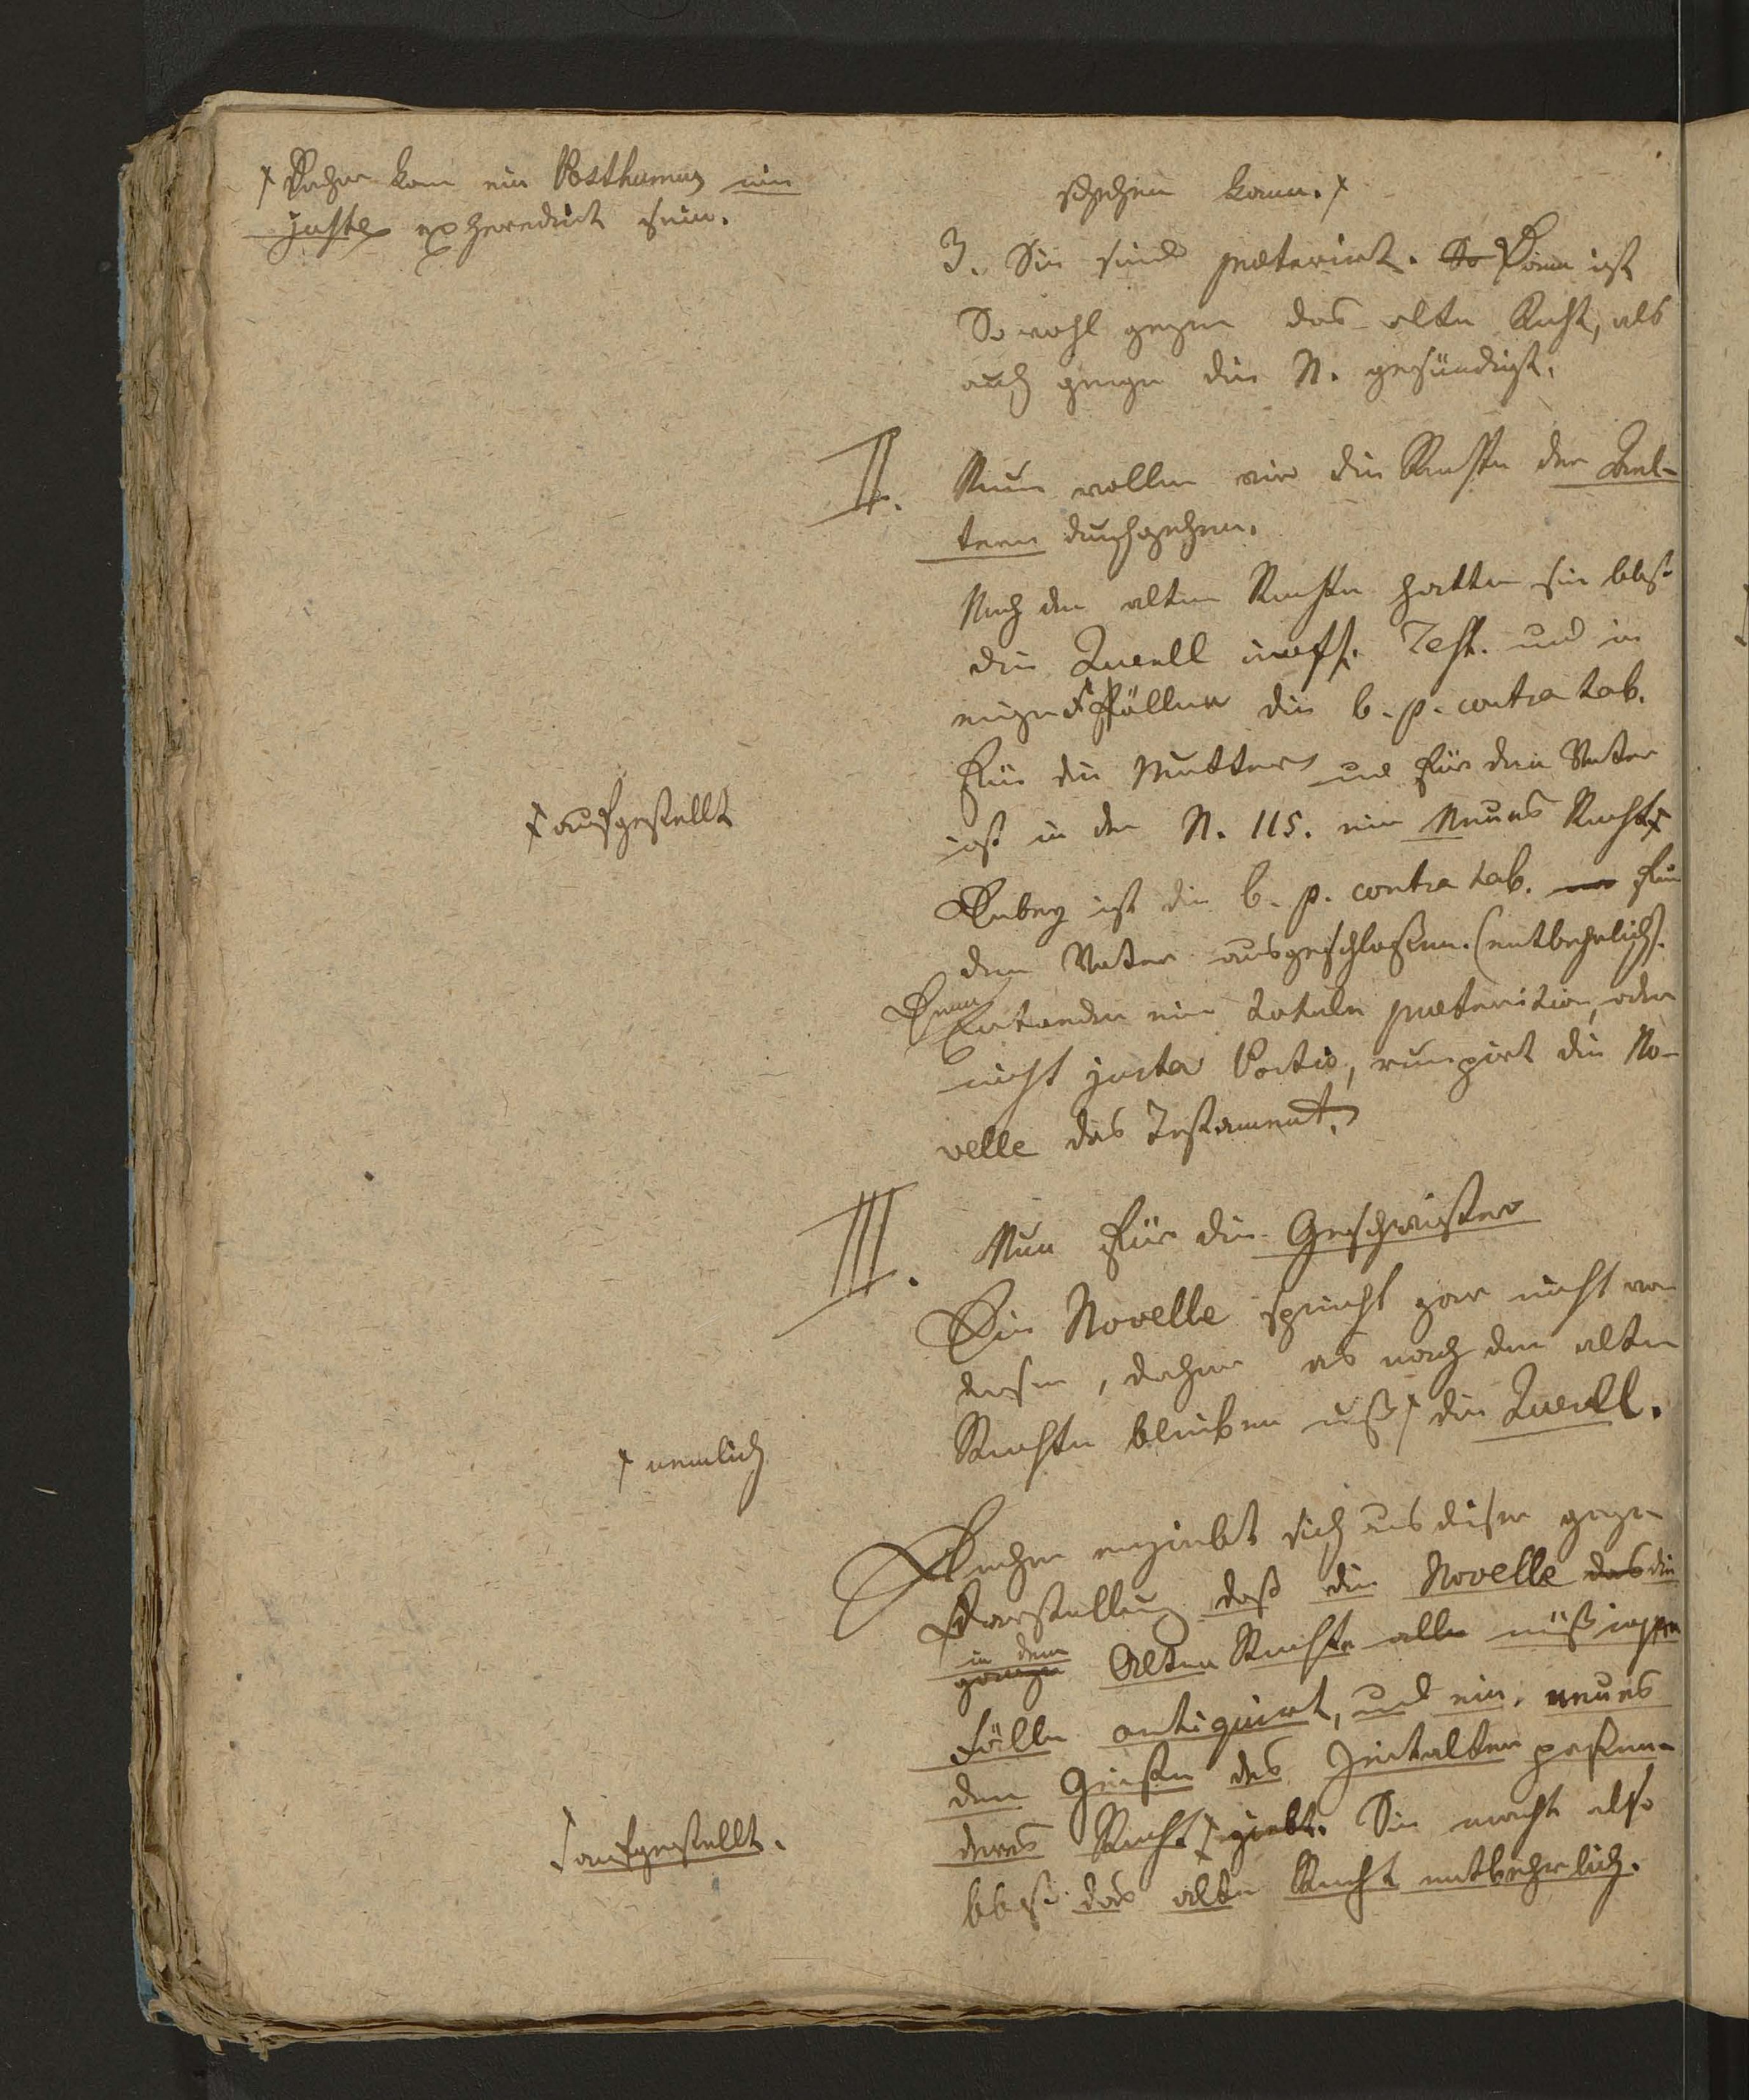 † Daher kan ein Posthumus nie
juste exheredirt sein.
schehen kann. †
3. Sie sind præterirt. So Dann ist
So wohl gegen das alte Recht, als
auch gegen die N. gesündigt.
II. Nun wollen wir die Rechte der Ael-
tern durchgehen.
Nach den alten Rechten hatten sie blos
die Querell inoff. Test. und in
einigen Fällen die b. p. contra tab.
Für die Mutter und für den Vater
ist in der N. 115. ein Neues Recht †
† aufgestellt
Dabey ist die b. p. contra tab. für
den Vater ausgeschloßen. (entbehrlich).
Denn
Entweder eine totale præterition, oder
nicht justa Portio, rumpirt die No-
velle das Testament.
III. Nun für die Geschwister
Die Novelle spricht gar nicht von
diesen, daher es nach den alten
Rechten bleiben muß † die Querell.
† nemlich
Daher ergiebt sich aus dieser ganzen
Darstellung daß die Novelle das die
in dem
ganze Alten Rechte alle
Fälle antiquirt, und ein neues
dem Geiste des Zeitalters paßen-
deres Recht † giebt. Sie macht also
† aufgestellt.
blos das alte Recht entbehrlich.